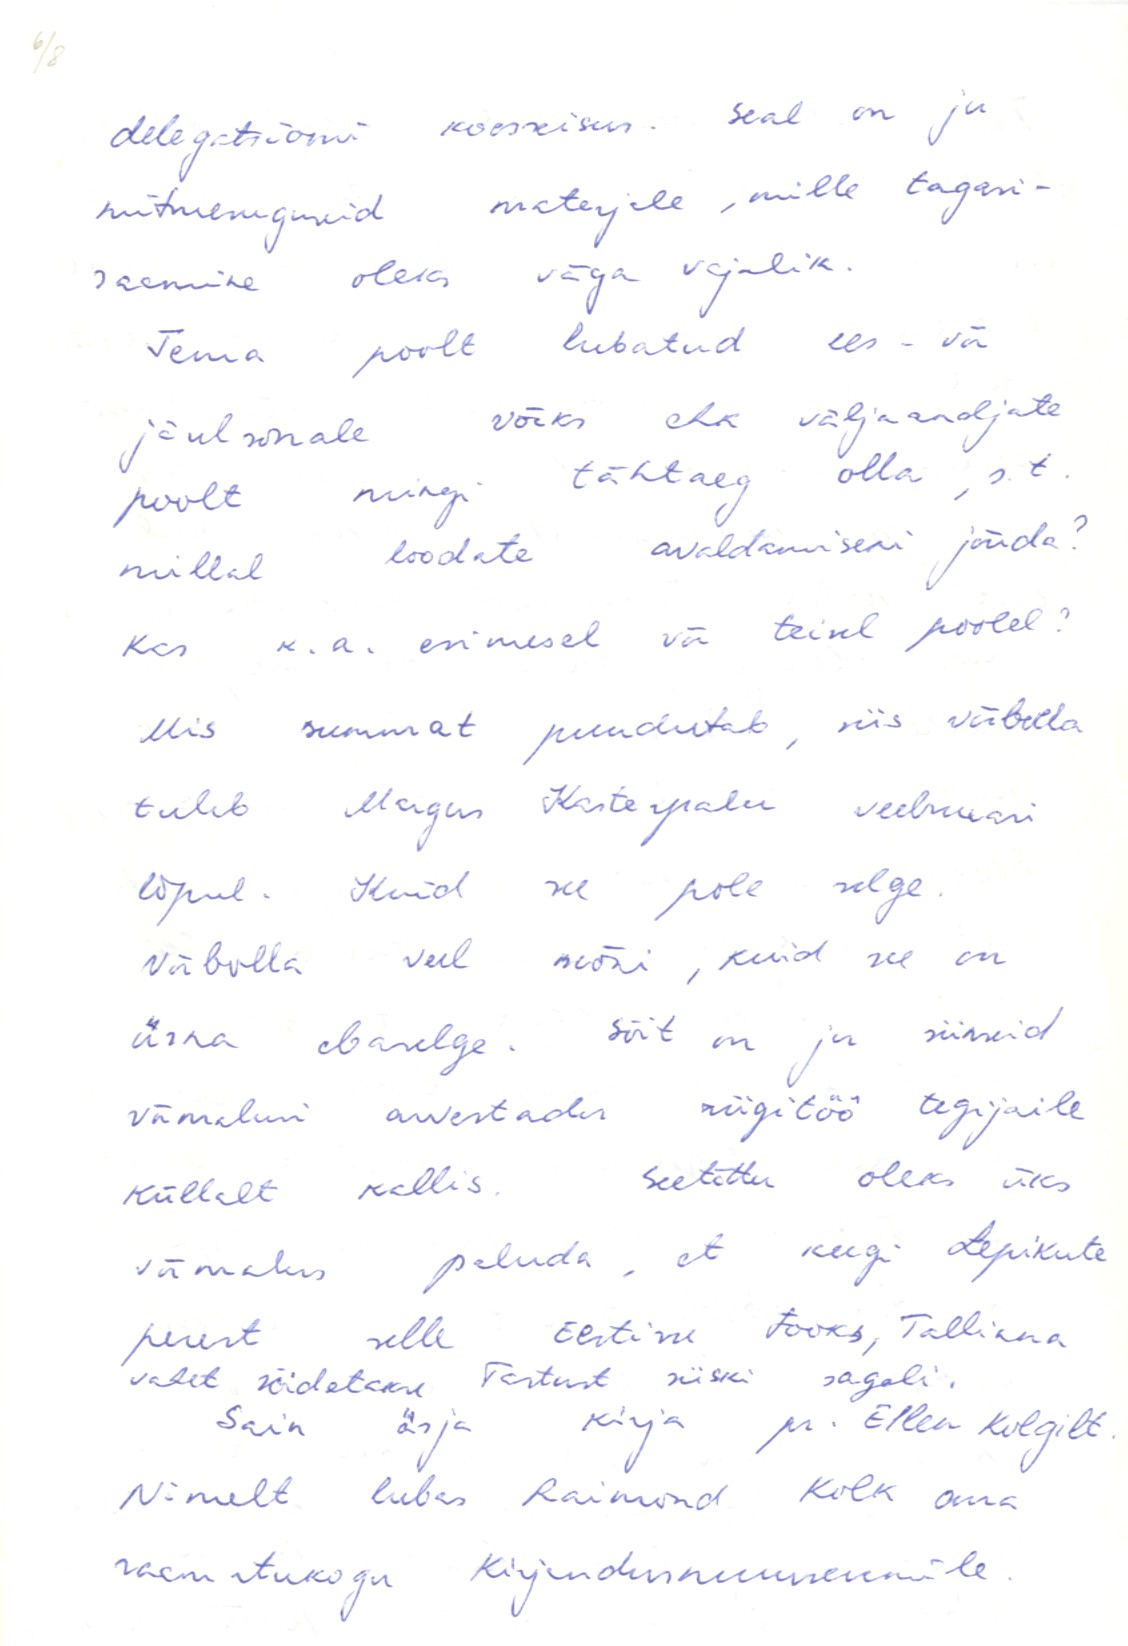 6/8
delegatsiooni koosseisus. Seal on ju
mitmesuguseid materjale, mille tagasi-
saamine oleks väga vajalik.
Tema poolt lubatud ees- või
järelsõnale võiks ehk väljaandjate
poolt mingi tähtaeg olla, s.t.
millal loodate avaldamiseni jõuda?
Kas k.a. esimesel või teisel poolel?
Mis summat puudutab, siis võibolla
tuleb Margus Kasterpalu veebruari
lõpul. Kuid see pole selge.
Võibolla veel mõni, kuid see on
üsna ebaselge. Sõit on ju siinseid
võimalusi arvestades riigitöö tegijaile
küllalt kallis. Seetõttu oleks üks
võimalus paluda, et keegi Lepikute
perest selle Eestisse tooks, Tallinna
vahet sõidetakse Tartust siiski sageli.
Sain äsja kirja pr. Ellen Kolgilt.
Nimelt lubas Raimond Kolk oma
raamatukogu Kirjandusmuuseumile.